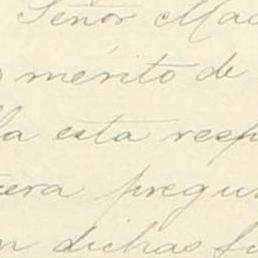 Señor Mad
mérito de
la esta resp
tera pregun
n dichas fi